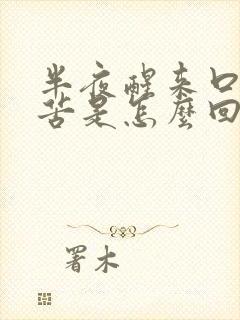 半夜醒来口
苦是怎麼回
署木